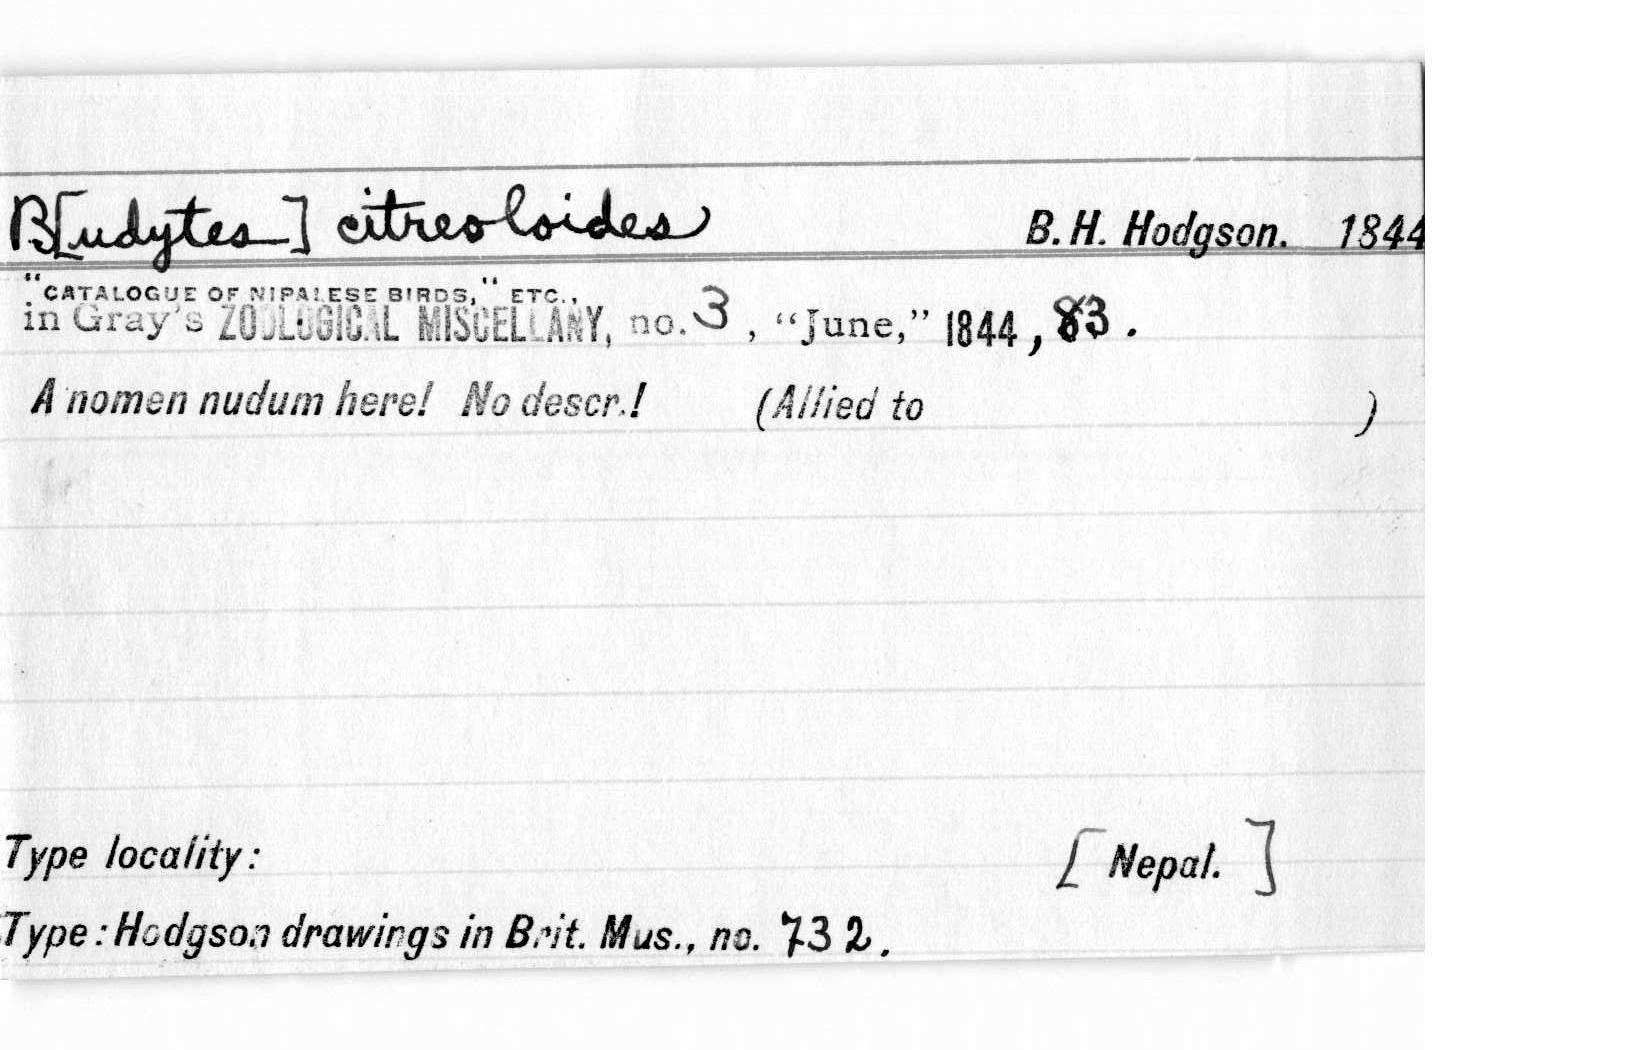 B[udytes] citreoloides B. H. Hodgson. 1844
"CATALOGUE OF NIPALESE BIRDS," ETC.,
in Gray's ZOOLOGICAL MISCELLANY, no. 3, "June," 1844, 83.
A nomen nudum here! No descr.! (Allied to )
Type locality: [Nepal.]
Type: Hodgson drawings in Brit. Mus., no. 732.